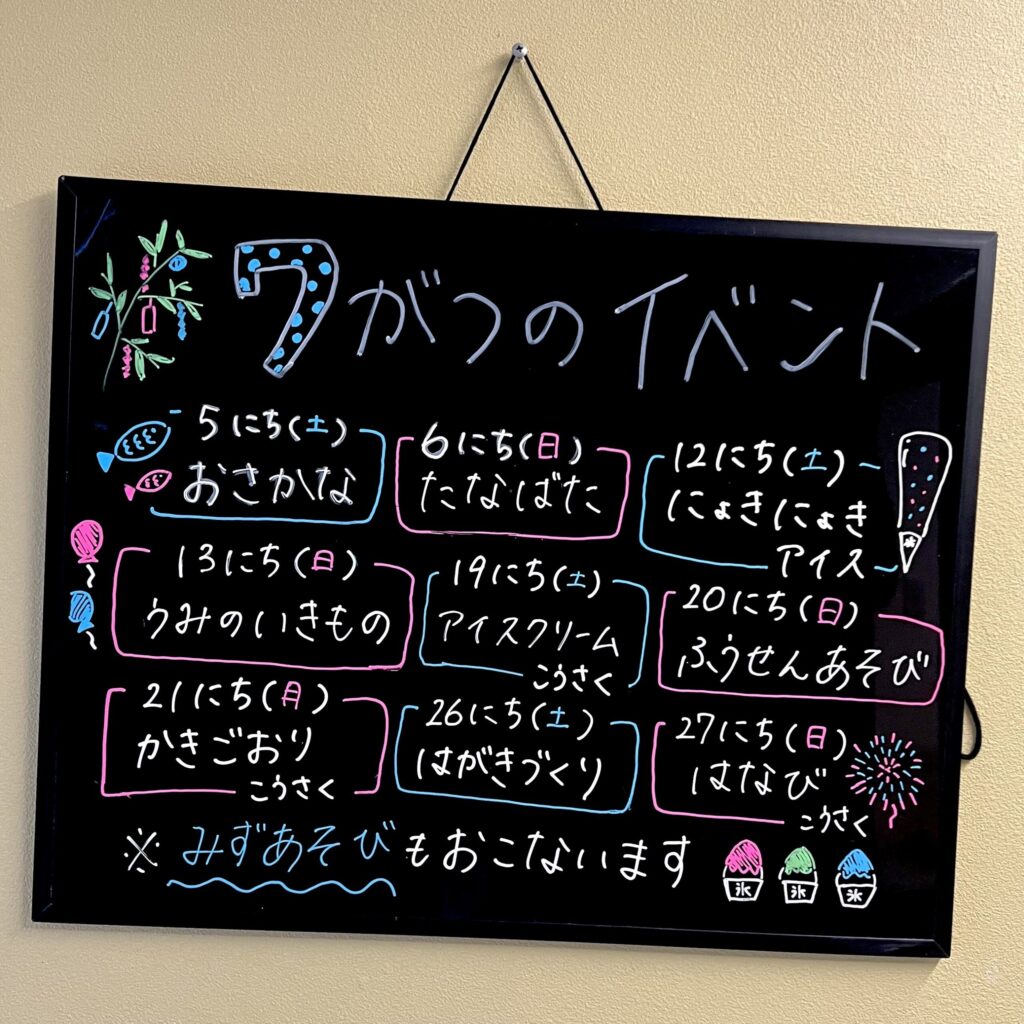 7がつのイベント
5にち(土)
おさかな
6にち(日)
たなばた
12にち(土)
にょきにょき
アイス
13にち(日)
うみのいきもの
19にち(土)
アイスクリーム
こうさく
20にち(日)
ふうせんあそび
21にち(月)
かきごおり
こうさく
26にち(土)
はがきづくり
27にち(日)
はなび
こうさく
※みずあそびもおこないます
氷 氷 氷